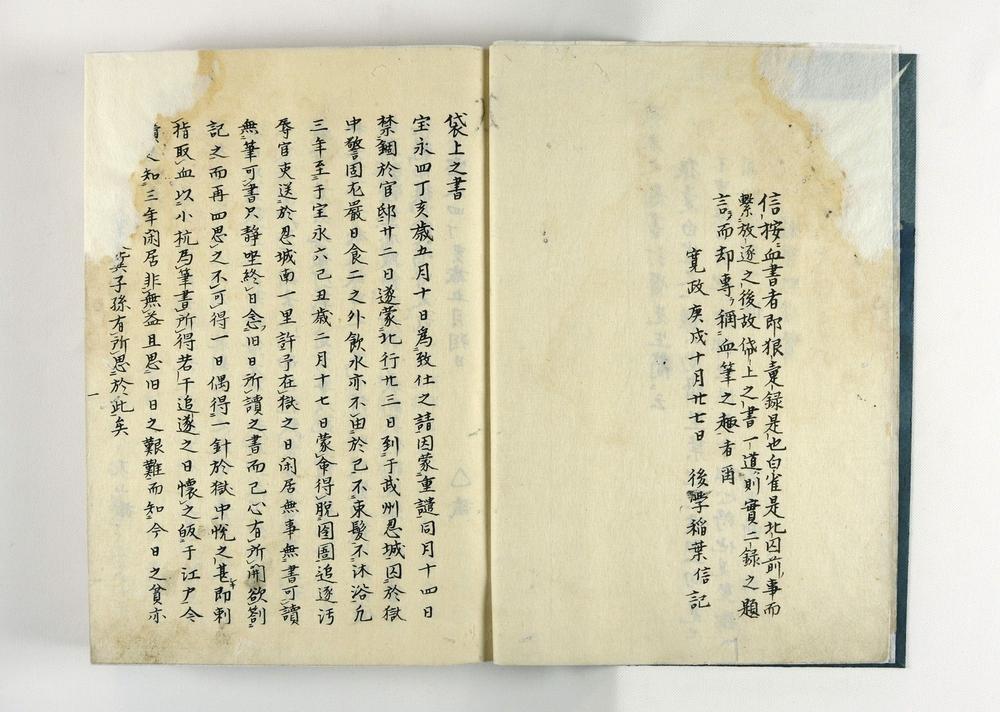 信按血書者即狼疐録是也白雀是北囚前事而
繋放逐之後故袋上之書一道則實二録之題
言而却專稱血筆之趣者爾
寛政庚戌十月廿七日 後學稲葉信記
袋上之書
宝永四丁亥歳五月十日為致仕之請因蒙重譴同月十四日
禁錮於官邸廿二日遂蒙北行廿三日到于武州忍城囚於獄
中警固尤嚴日食二之外飲水亦不由於己不束髪不沐浴凡
三年至于宝永六己丑歳二月十七日蒙命得脱囹圄追逐汚
辱官吏送於忍城南一里許予在獄之日閑居無事無書可讀
無筆可書只静坐終日念旧日所讀之書而己心有所開欲劄
記之而再四思之不可得一日偶得一針於獄中悦之甚即刺
指取血以小杭為筆書所得若干追逐之日懐之皈于江戸今
知三年閑居非無益且思旧日之艱難而知今日之貧亦
冀子孫有所思於此矣